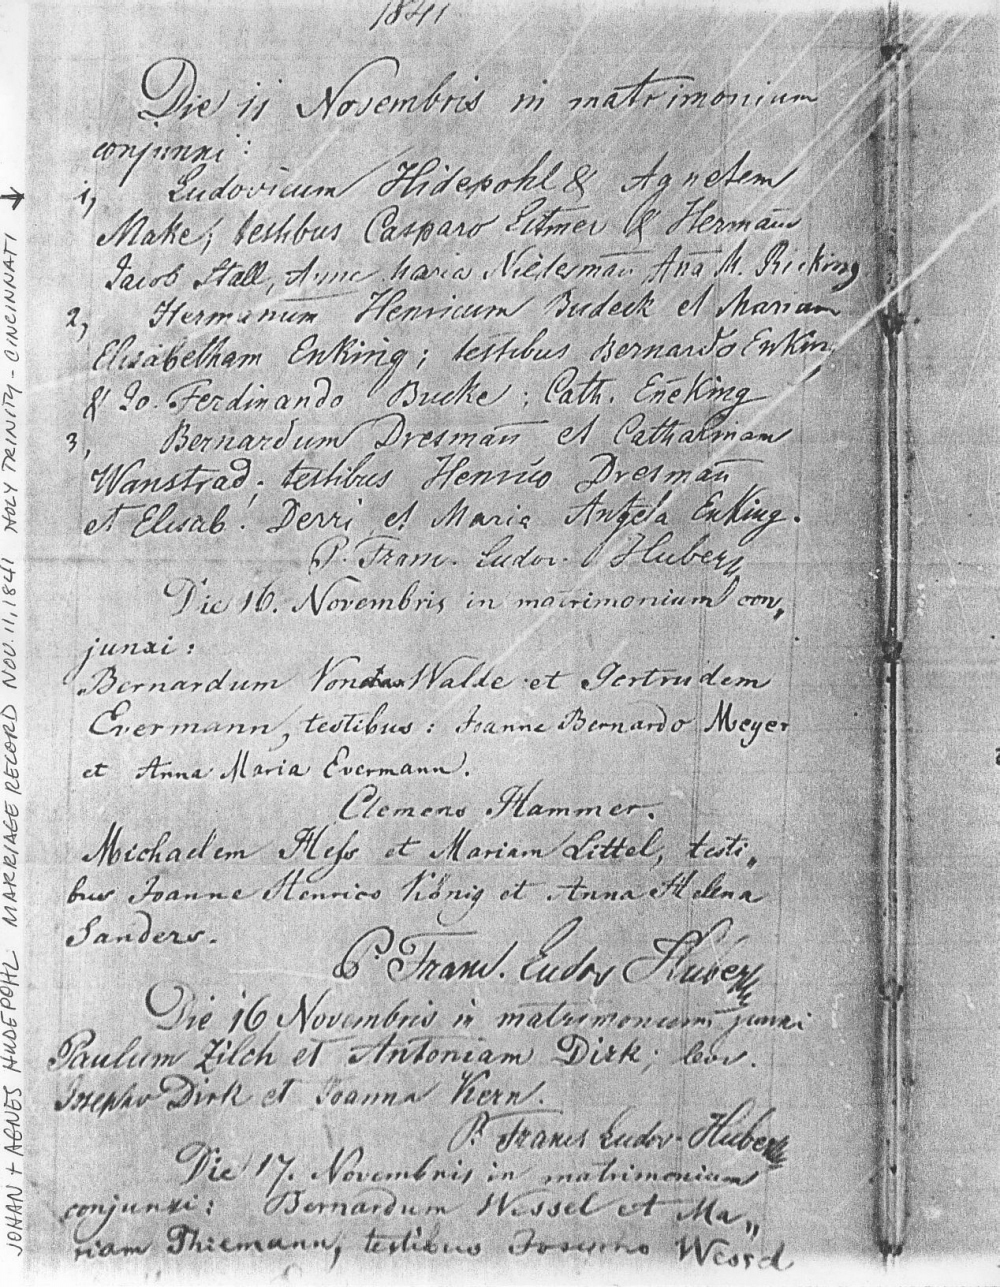 1841
Die 11 Novembris in matrimonium
conjunxi:
1, Ludovicum Hidepohl & Agnetem
Make; testibus Casparo Eitmer & Hermañ
Jacob Stall, Anne Maria Niedesmañ Aña M. Ricking
2, Hermanum Henricum Budeck et Mariam
Elisabetham Enking; testibus Bernardo Enking
& Jo. Ferdinando Bucke; Cath. Eneking
3, Bernardum Dresmañ et Catharinam
Wanstrad; testibus Henrico Dresmañ
et Elisab. Derri et Maria Angela Enking.
P. Franc. Ludov. Huber
Die 16. Novembris in matrimonium con„
junxi:
Bernardum Von Walde et Gertrudem
Evermann, testibus: Joanne Bernardo Meyer
et Anna Maria Evermann.
Clemens Hammer.
Michaelem Heß et Mariam Littel, testi„
bus Joanne Henrico König et Anna Helena
Sanders.
P. Franc. Ludov Huber
Die 16 Novembris in matrimonium junxi
Paulum Zilch et Antoniam Dirk; cor.
Josepho Dirk et Joanna Kern.
P. Francis Ludov. Huber
Die 17. Novembris in matrimonium
conjunxi: Bernardum Wessel et Ma„
riam Thiemann, testibus Wessel
JOHAN + AGNES HUDEPOHL MARRIAGE RECORD NOV. 11, 1841 HOLY TRINITY - CINCINNATI →